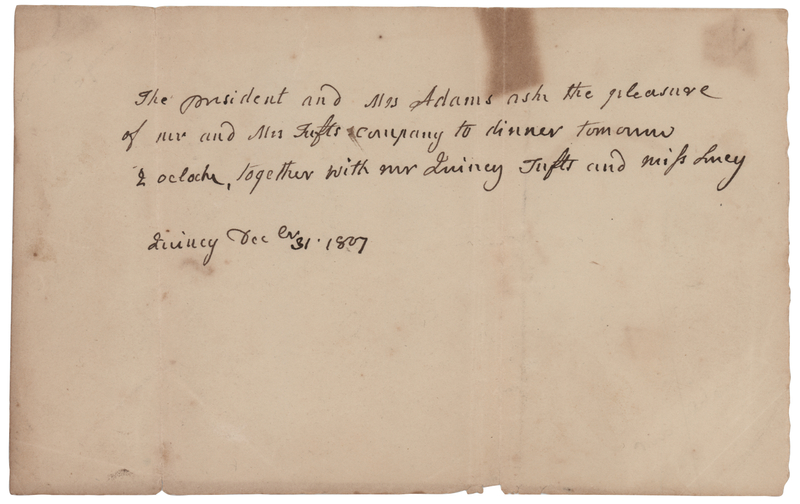 The president and Mrs Adams ask the pleasure
of mr and Mrs Tufts company to dinner tomorrow
2 oclock, together with mr Quincy Tufts and miss Lucy
Quincy Decbr 31. 1807